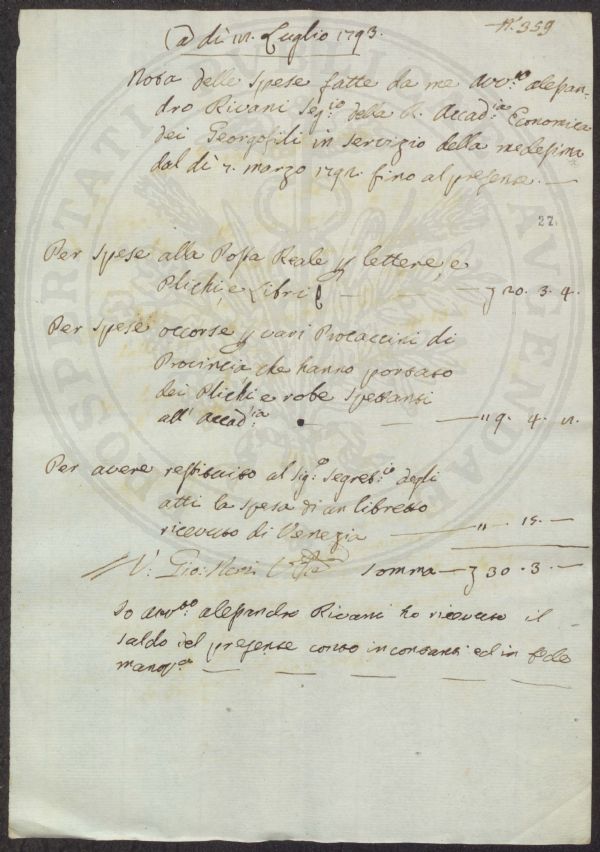 N.° 359
a dì 12. Luglio 1793.
Nota delle Spese fatte da me Avv.to Alessan-
dro Rivani Seg.rio della R. Accad.ia Economica
dei Georgofili in servizio della medesima
dal dì 7. marzo 1792. fino al presente. —
27.
Per Spese alla Posta Reale p lettere, e
Plichi, e Libri — — — 20. 3. 4.
Per Spese occorse p vari Procaccini di
Provincia che hanno portato
dei Plichi e robe spettanti
all' Accad.ia — — — " 9. 4. 2.
Per avere restituito al Sig.e Segret.rio degli
atti la spesa di un libretto
ricevuto di Venezia — " — 15. —
V.° Gio: Somma — 30. 3. —
Io Avv.to Alessandro Rivani ho ricevuto il
saldo del presente conto in contanti ed in fede
mano pp.a
PROSPERITATI PUBLICAE AUGENDAE